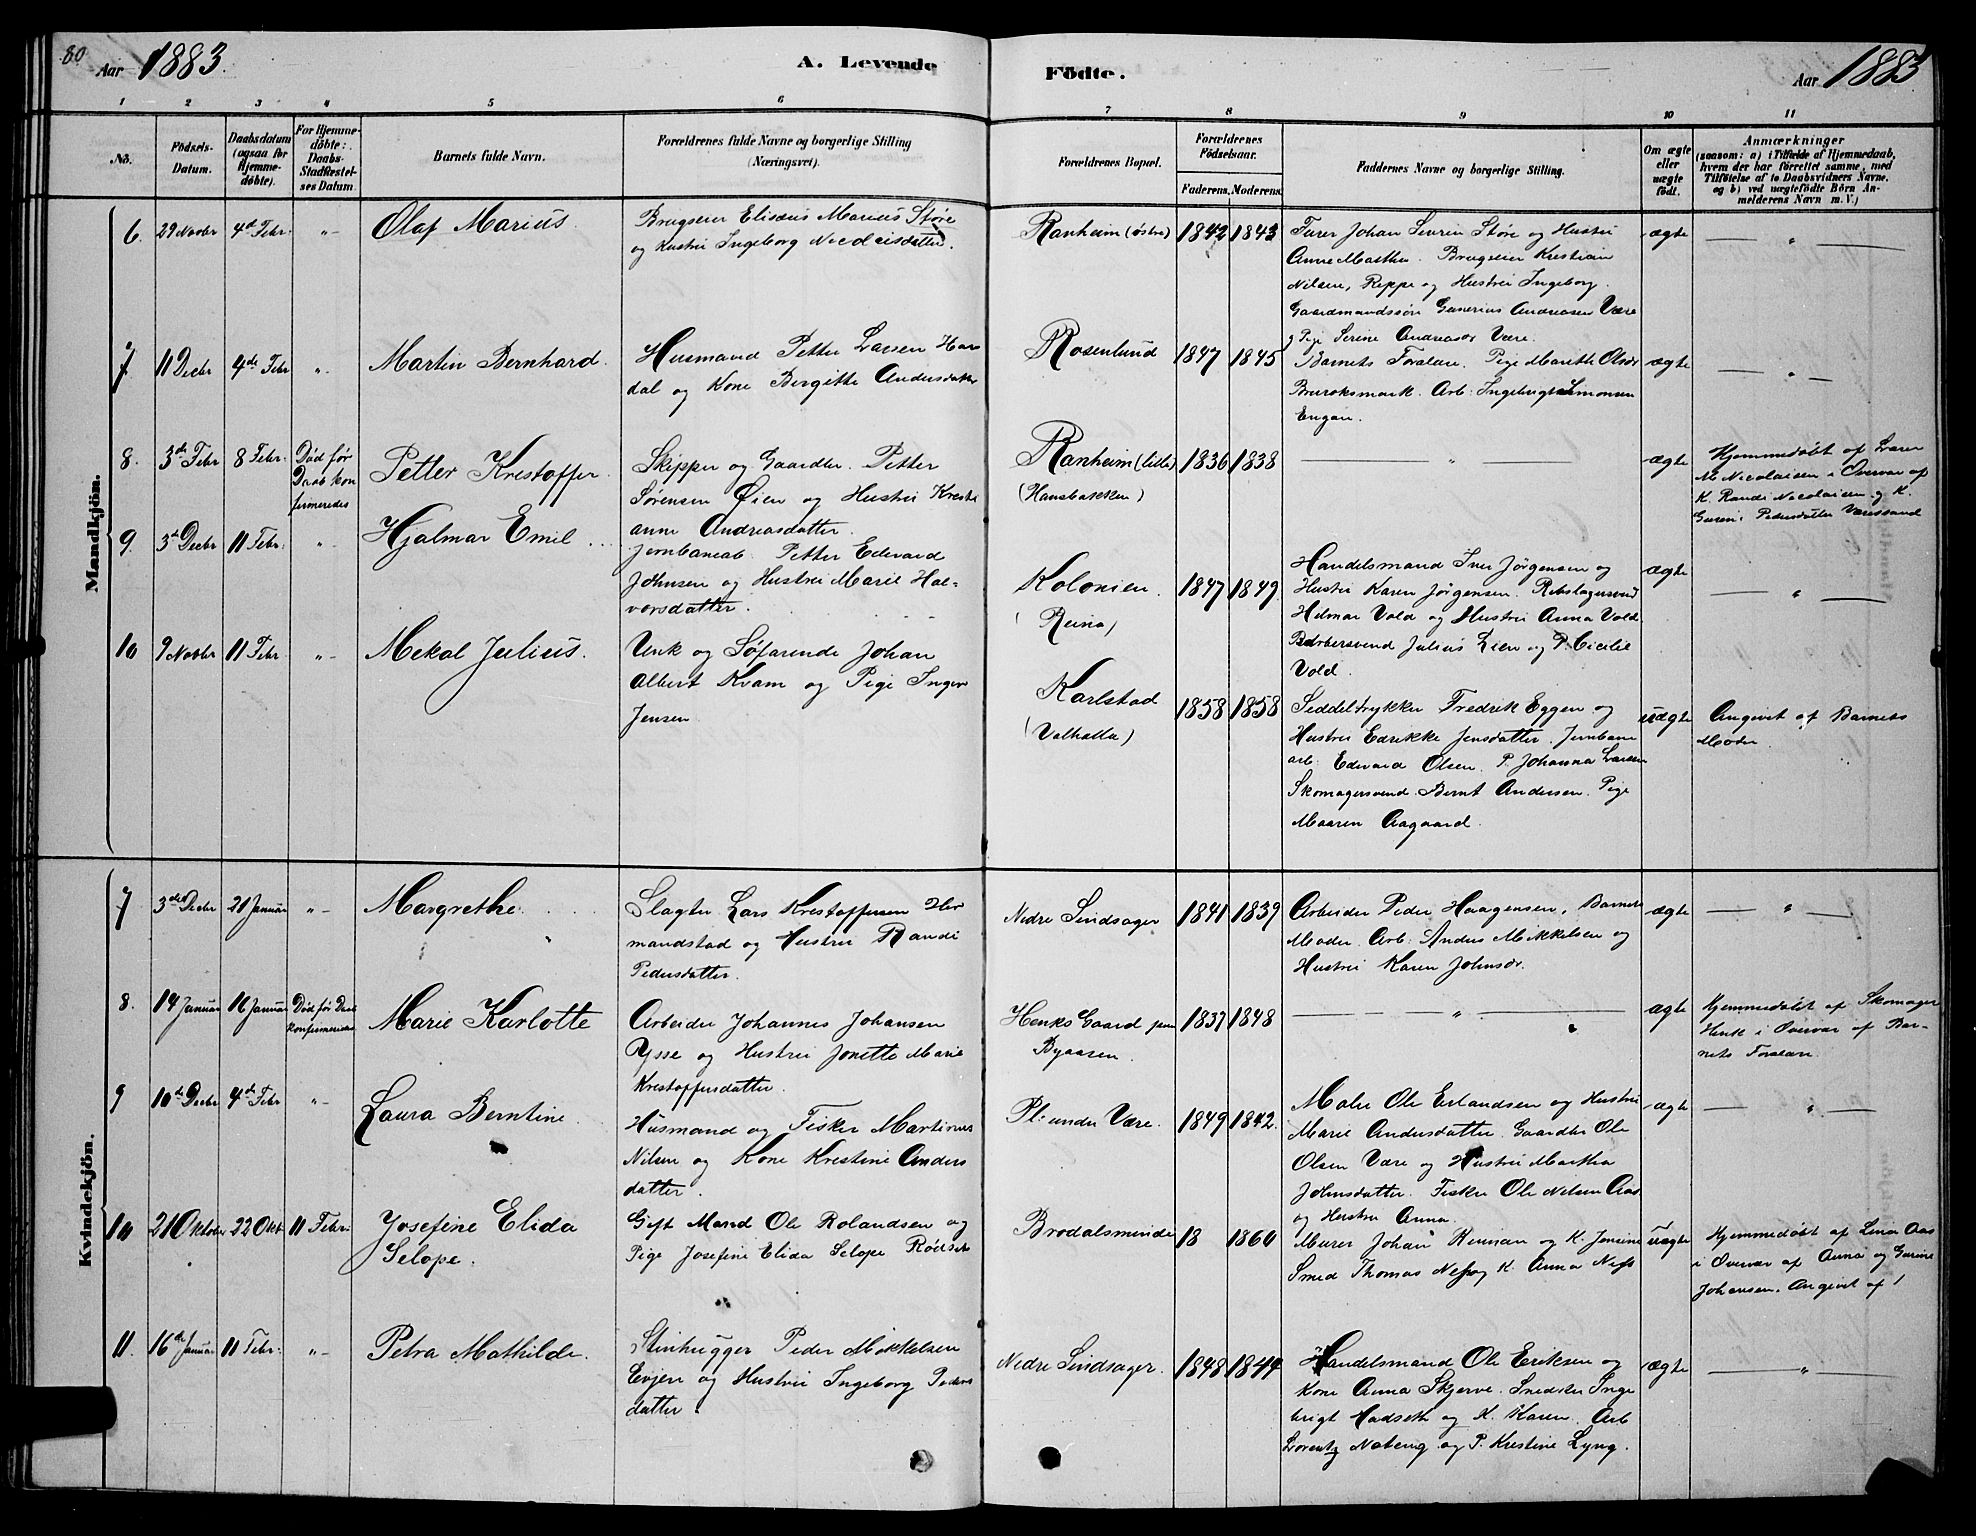 80
Aar 1883.
A. Levende
Födte.
Aar 1883
1 2 3 4 5 6 7 8 9 10 11
No.
Födsels-
Datum.
Daabsdatum
(ogsaa for
Hjemme-
döbte).
For Hjemme-
döbte:
Daabs-
Stadfæstel-
ses Datum.
Barnets fulde Navn.
Forældrenes fulde Navne og borgerlige Stilling
(Næringsvei).
Forældrenes Bopæl.
Forældrenes
Födselsaar.
Faderens. Moderens.
Faddernes Navne og borgerlige Stilling.
Om ægte
eller
uægte
födt.
Anmærkninger
(saasom: a) i Tilfælde af Hjemmedaab,
hvem der har forrettet samme, med
Tilföielse af to Daabsvidners Navne.
og b) ved uægtefödte Börn An-
melderens Navn m. V.)
Mandkjön.
6. 29 Novbr 4de Febr. "
Olaf Marius.
Brugseier Elisæus Marius Støre
og Hustru Ingeborg Nicolaisdatter.
Ranheim (østre)
1842 1843
Farer Johan Sevrin Støre og Hustru
Anne Martha. Brugseier Kristian
Nilsen, Reppe og Hustru Ingeborg.
Gaardmandssøn Gunerius Andreasen Være
og Pige Serine Andreasdr Være.
ægte
"
7 11 Decbr 4de Febr "
Martin Bernhard.
Husmand Petter Larsen Har
dal og Kone Birgitte Andersdatter
Rosenlund
1847 1845
Barnets Forældre. Pige Marethe Olsdr
Bruroksmark. Arb. Ingebrigt Simonsen
Engan.
ægte
"
8. 3de Febr 8 Febr.
Død før
Daab kon
firmeredes
Petter Kristoffer.
Skipper og Gaardbr. Petter
Sørensen Øien og Hustru Kristi
anne Andreasdatter.
Ranheim (lille)
(Hansbakken)
1836 1838
"
ægte
Hjemmedøbt af Lærer
M Nicolaisen i Overvær af
K. Randi Nicolaisen og K.
Guruni Pedersdatter Væressand
9. 3de Decbr 11 Febr. "
Hjalmar Emil
Jernbanearb. Petter Edvard
Johnsen og Hustru Marie Hal-
vorsdatter.
Kolonien.
(Reina)
1847 1849
Handelsmand Iver Jørgensen og
Hustru Karen Jørgensen. Rebslagersvend
Hilmar Vold og Hustru Anna Vold.
Barbersvend Julius Lien og P. Cicilie
Vold.
ægte
"
10 9 Novbr 11 Febr. "
Mekal Julius.
Unk og Søfarende Johan
Albert Kvam og Pige Inger
Jensen
Karlstad
(Valhalla)
1858 1858
Seddeltrykker Fredrik Eggen og
Hustru Edrikke Jensdatter. Jernbane
arb. Edvard Olsen. P. Johanna Larsen
Skomagersvend Bernt Andersen. Pige
Maaren Aagaard.
uægte
Angivet af Barnets
Moder.
Kvindekjön.
7 3de Decbr 21 Januar "
Margrethe
Slagter Lars Kristoffersen Her
mandstad og Hustru Randi
Pedersdatter.
Nedre Sindsager
1841 1839
Arbeider Peder Haagensen, Barnets
Moder. Arb. Anders Mikkelsen og
Hustru Karen Johnsdr.
ægte
"
8. 14 Januar 16 Januar
Død før Daab
konfirmeredes
Marie Karlotte
Arbeider Johannes Johansen
Ysse og Hustru Jonette Marie
Kristoffersdatter.
Henks Gaard paa
Byaasen.
1837 1848
"
ægte
Hjemmedøbt af Skomager
Henk i Overvær af Bar-
nets Forældre.
9 10de Decbr 4de Febr "
Laura Berntine.
Husmand og Fisker Martinus
Nilsen og Kone Kristine Anders
datter.
Pl. under Være.
1849 1842.
Maler Ole Erlandsen og Hustru
Marie Andersdatter. Gaardbr Ole
Olsen Være og Hustru Martha
Johnsdatter. Fisker Ole Nilsen Aas
og Hustru Anna.
ægte
"
10 21 Oktober 22 Okt. 11 Febr.
Josefine Elida
Selope.
Gift Mand Ole Rolandsen og
Pige Josefine Elida Selope
Brodalsminde
18 1860
Murer Johan Reinan og K. Jonine
Smed Thomas Næss og K. Anna Næss
uægte
Hjemmedøbt af Lina Aas
i Overvær af Anna og Gurine
Johansen. Angivet af
11. 16de Januar 11 Febr. "
Petra Mathilde.
Stenhugger Peder Mikkelsen
Evjen og Hustru Ingeborg Peders
datter.
Nedre Sindsager.
1848 1844
Handelsmand Ole Eriksen og
Kone Anna Skjerve. Smedster Inge
brigt Hadseth og K. Karen. Arb
Lorentz Noberg og P. Kristine Lyng.
ægte
"